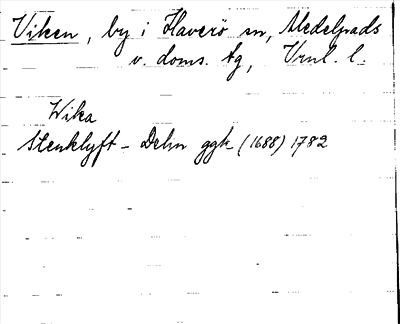 Viken, by i Haverö sn, Medelpads
v. doms. tg, Vrnl. l.
Wika
Stenklyft - Delin ggk (1688) 1782